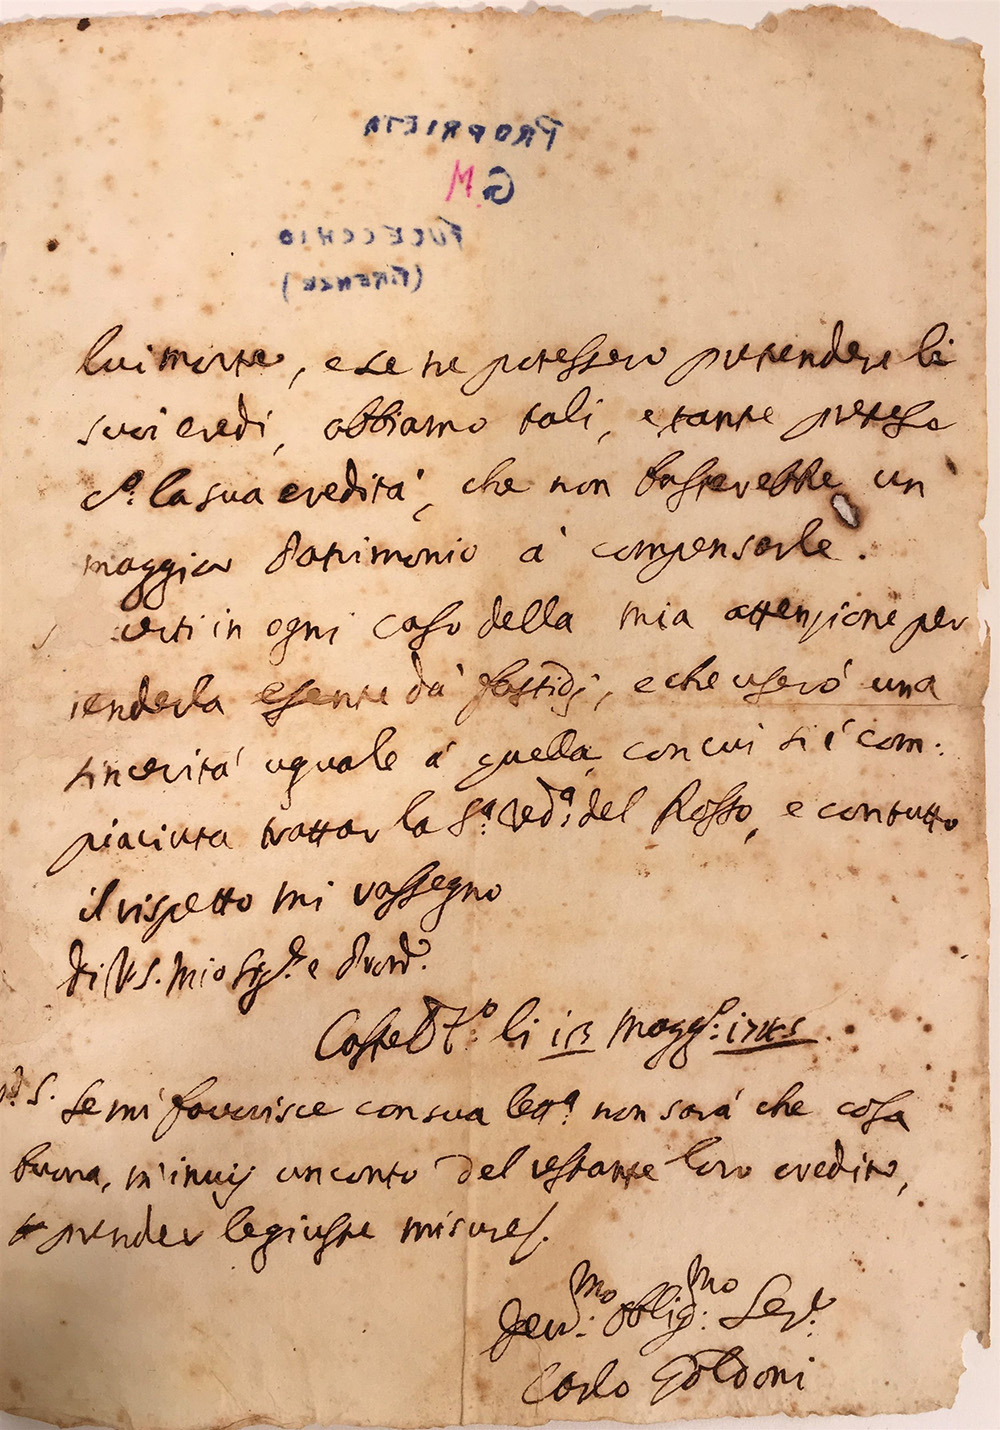 PROPRIETÀ
G.M
FUCECCHIO
(FIRENZE)
lui morte, e se ne potessero pretendere li
suoi eredi, abbiamo tali, e tante pretese
la sua eredità, che non basterebbe un
maggior Patrimonio à compensarle.
in ogni caso della mia attenzione per
renderla esente dà fastidj, e che userò una
sincerità uguale à quella, con cui si è com:
piaciuta trattar la S.ª Ved.ª del Rosso, e con tutto
il rispetto mi rassegno
di V.S. mio Sig.r e Pron.
li 13 Magg.º: 1745.
P. S. Se mi favorisce con sua lett.ª non sarà che cosa
buona, m'invij un conto del restante loro credito,
prender le giuste misure.
Dev.mo: Obblig.mo: Ser.r
Carlo Goldoni